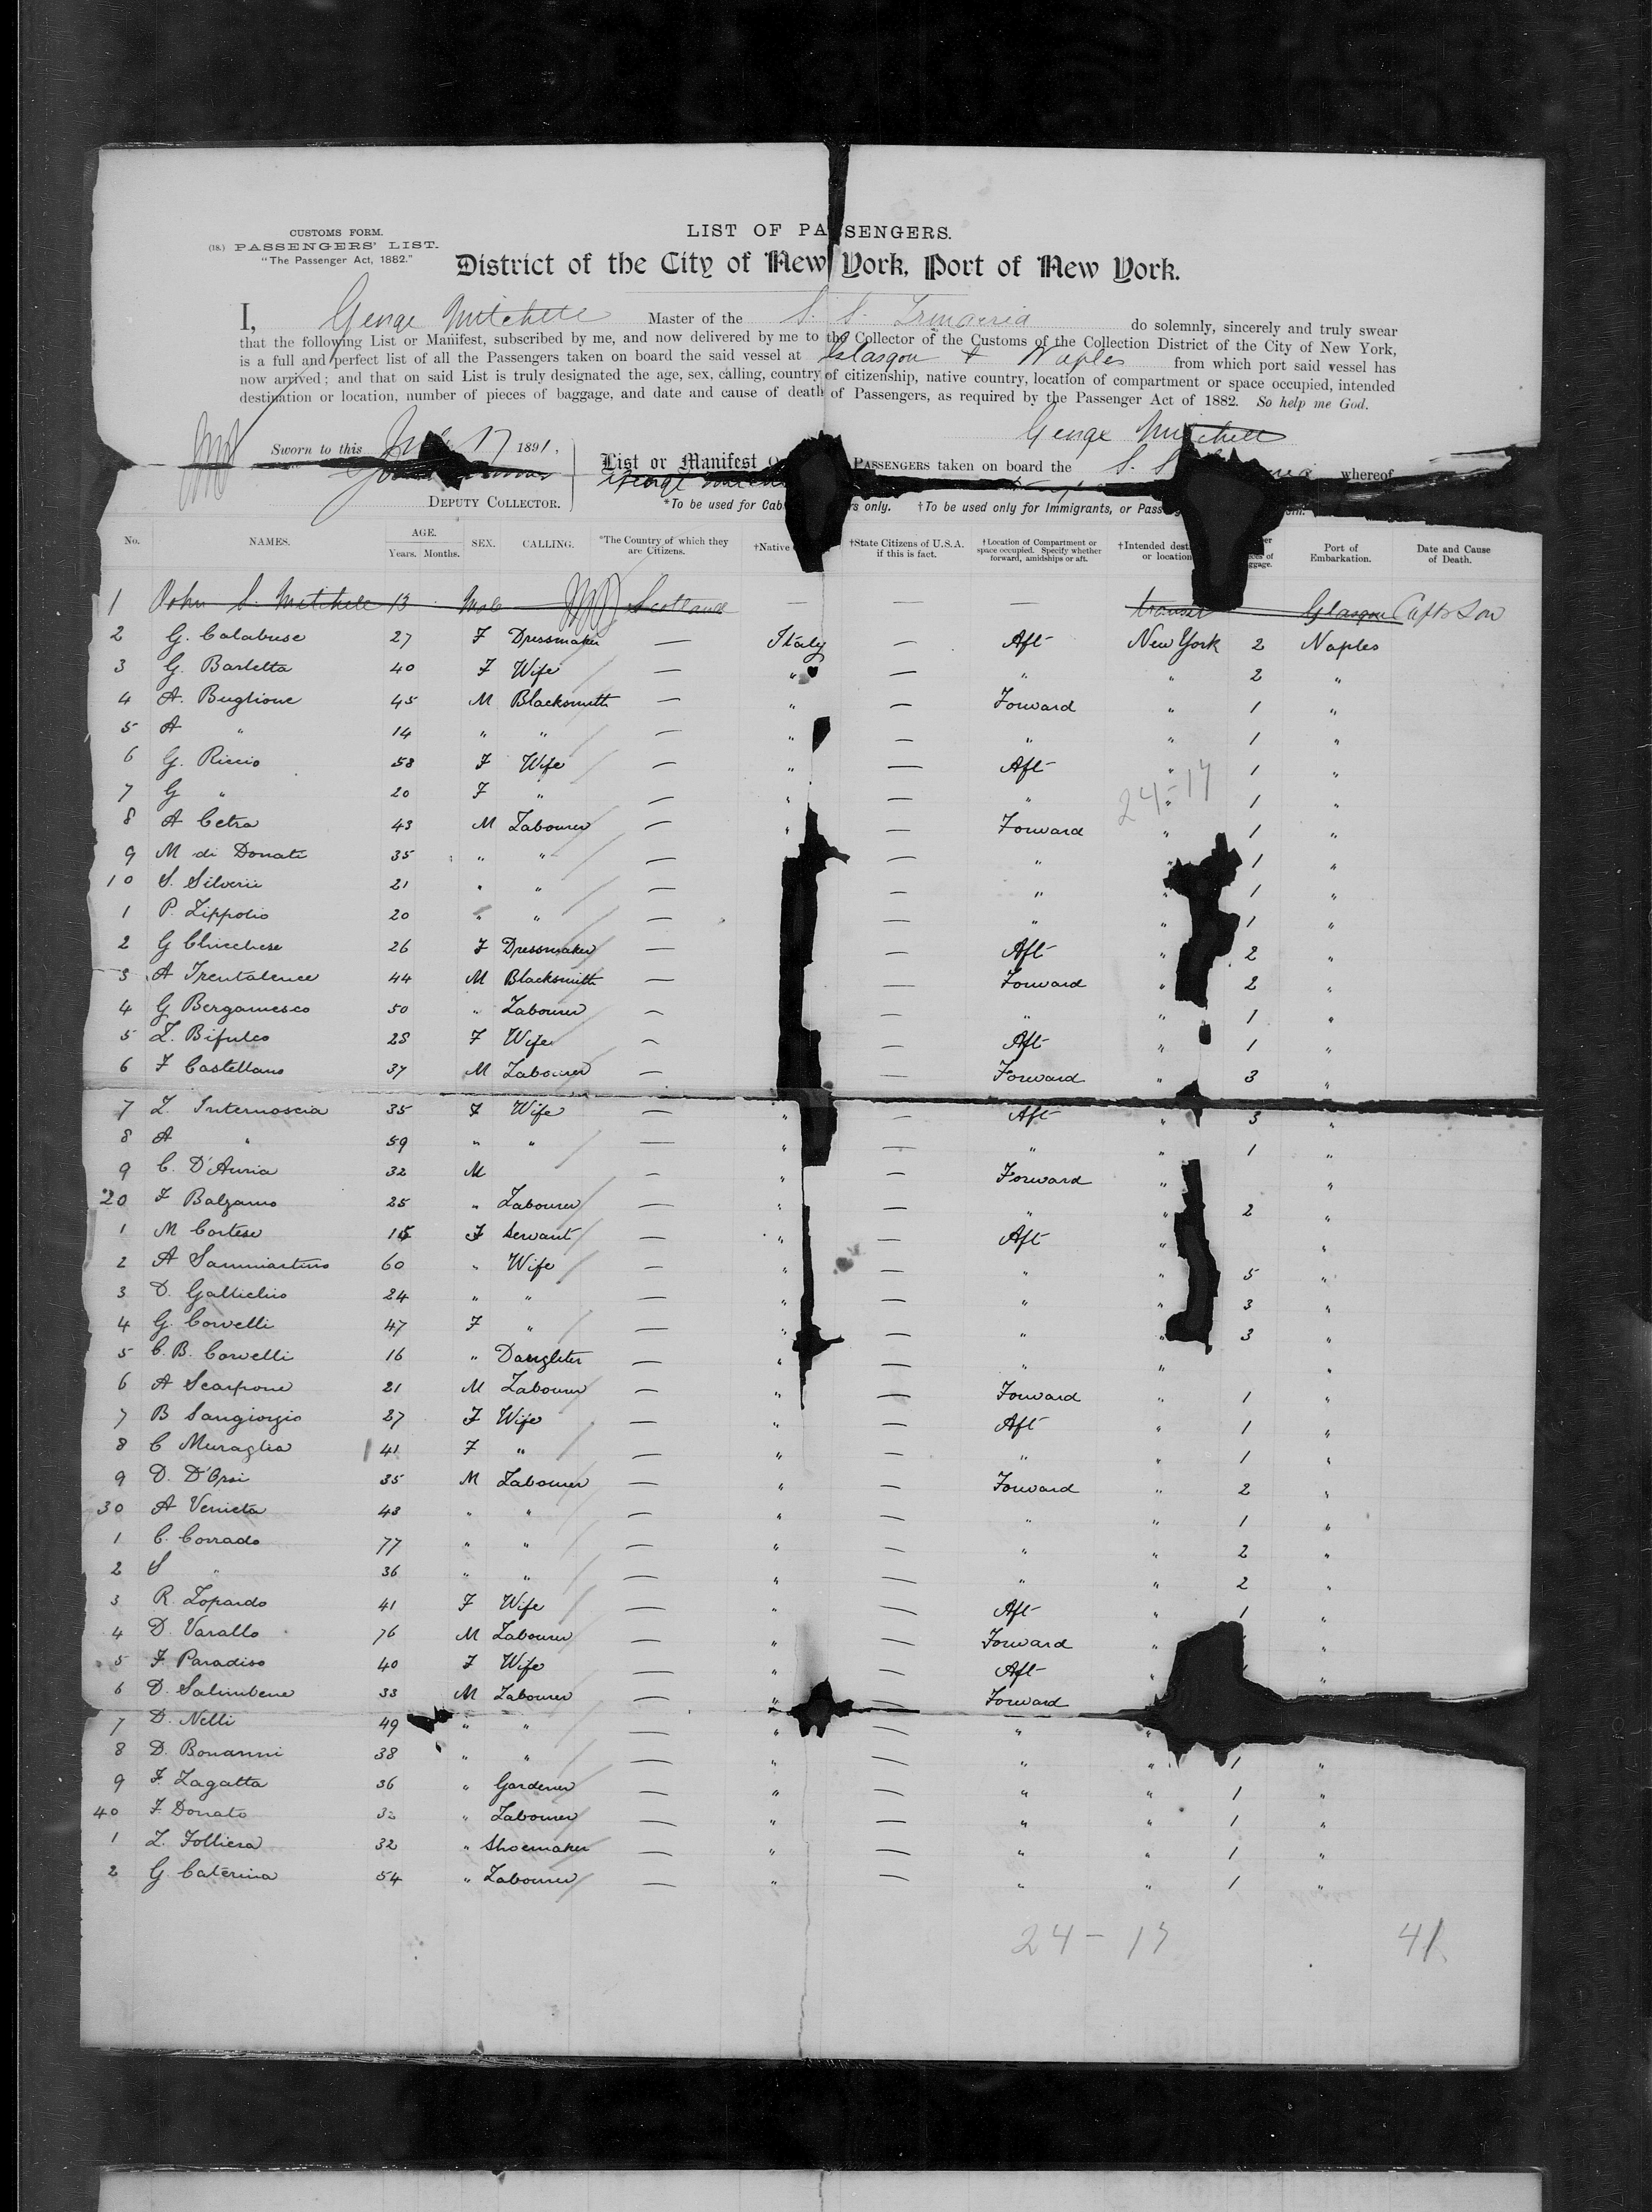 CUSTOMS FORM.
(18.) PASSENGERS' LIST.
"The Passenger Act, 1882."
LIST OF PASSENGERS.
District of the City of New York, Port of New York.
I, George Mitchell Master of the S. S. Trinacria do solemnly, sincerely and truly swear
that the following List or Manifest, subscribed by me, and now delivered by me to the Collector of the Customs of the Collection District of the City of New York,
is a full and perfect list of all the Passengers taken on board the said vessel at Glasgow & Naples from which port said vessel has
now arrived; and that on said List is truly designated the age, sex, calling, country of citizenship, native country, location of compartment or space occupied, intended
destination or location, number of pieces of baggage, and date and cause of death of Passengers, as required by the Passenger Act of 1882. So help me God.
George Mitchell
Sworn to this 17 1891.
List or Manifest PASSENGERS taken on board the S. S. whereof
George
DEPUTY COLLECTOR.
*To be used for only. †To be used only for Immigrants, or
No. NAMES. AGE. Years. Months. SEX. CALLING. *The Country of which they are Citizens. †Native †State Citizens of U.S.A. if this is fact. †Location of Compartment or space occupied. Specify whether forward, amidships or aft. †Intended or location Port of Embarkation. Date and Cause of Death.
1 John S. Mitchell 13 Male Scotland — — — transit Glasgow Capts Son
2 G. Calabrese 27 F Dressmaker — Italy — Aft New York 2 Naples
3 G. Barletta 40 F Wife — " — " " 2 "
4 A. Buglione 45 M Blacksmith — " — Forward " 1 "
5 A " 14 " " — " — " " 1 "
6 G. Riccio 58 F Wife — " — Aft " 1 "
7 G " 20 F " — " — " " 1 "
24-17
8 A Cetra 43 M Labourer — " — Forward " 1 "
9 M di Donati 35 " " — — " " 1 "
10 S. Silverii 21 " " — — " " 1 "
1 P. Zippolio 20 " " — — " " 1 "
2 G Chirchese 26 F Dressmaker — — Aft " 2 "
3 A Trentalence 44 M Blacksmith — — Forward " 2 "
4 G Bergamesco 50 " Labourer — — " " 1 "
5 L. Bifulco 28 F Wife — — Aft " 1 "
6 F Castellano 37 M Labourer — — Forward " 3 "
7 L. Internoscia 35 F Wife — " — Aft " 3 "
8 A " 59 " " — " — " " 1 "
9 C. D'Auria 32 M — " — Forward " "
20 F Balzano 25 " Labourer — " — " " 2 "
1 M Cortese 15 F Servant — " — Aft " "
2 A Sanmartino 60 " Wife — " — " " 5 "
3 D. Gallichio 24 " " — " — " " 3 "
4 G. Corvelli 47 F " — " — " " 3 "
5 C. B. Corvelli 16 " Daughter — " — " " "
6 A Scarpone 21 M Labourer — " — Forward " 1 "
7 B Sangiorgio 27 F Wife — " — Aft " 1 "
8 C Muraglia 41 F " — " — " " 1 "
9 D. D'Orsi 35 M Labourer — " — Forward " 2 "
30 A Venieta 43 " " — " — " " 1 "
1 C. Corrado 77 " " — " — " " 2 "
2 S " 36 " " — " — " " 2 "
3 R. Lopardo 41 F Wife — " — Aft " 1 "
4 D. Varallo 76 M Labourer — " — Forward " "
5 F. Paradiso 40 F Wife — " — Aft " "
6 D. Salimbene 33 M Labourer — " — Forward
7 D. Nelli 49 " " — " — " "
8 D. Bonanni 38 " " — " — " " 1 "
9 F. Zagatta 36 " Gardener — " — " " 1 "
40 F. Donato 32 " Labourer — " — " " 1 "
1 L. Folliera 32 " Shoemaker — " — " " 1 "
2 G. Caterina 54 " Labourer — " — " " 1 "
24 - 17 41